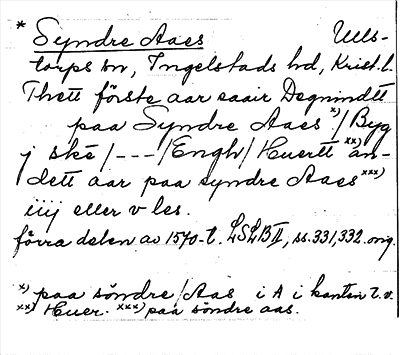 * Syndre Aaes Ulls-
torps sn, Ingelstads hd, Krist. l.
Thett förste aar saair Degnindtt
paa Syndre Aaes x) / Byg
j ske / --- / Engh / Huertt xx) an-
dett aar paa syndre Aaes xxx)
iiij eller v les.
förra delen av 1570-t. LSLB II, ss. 331, 332. orig.
x) paa söndre / Aas i A i kanten t.v.
xx) Huer. xxx) paa söndre aas.